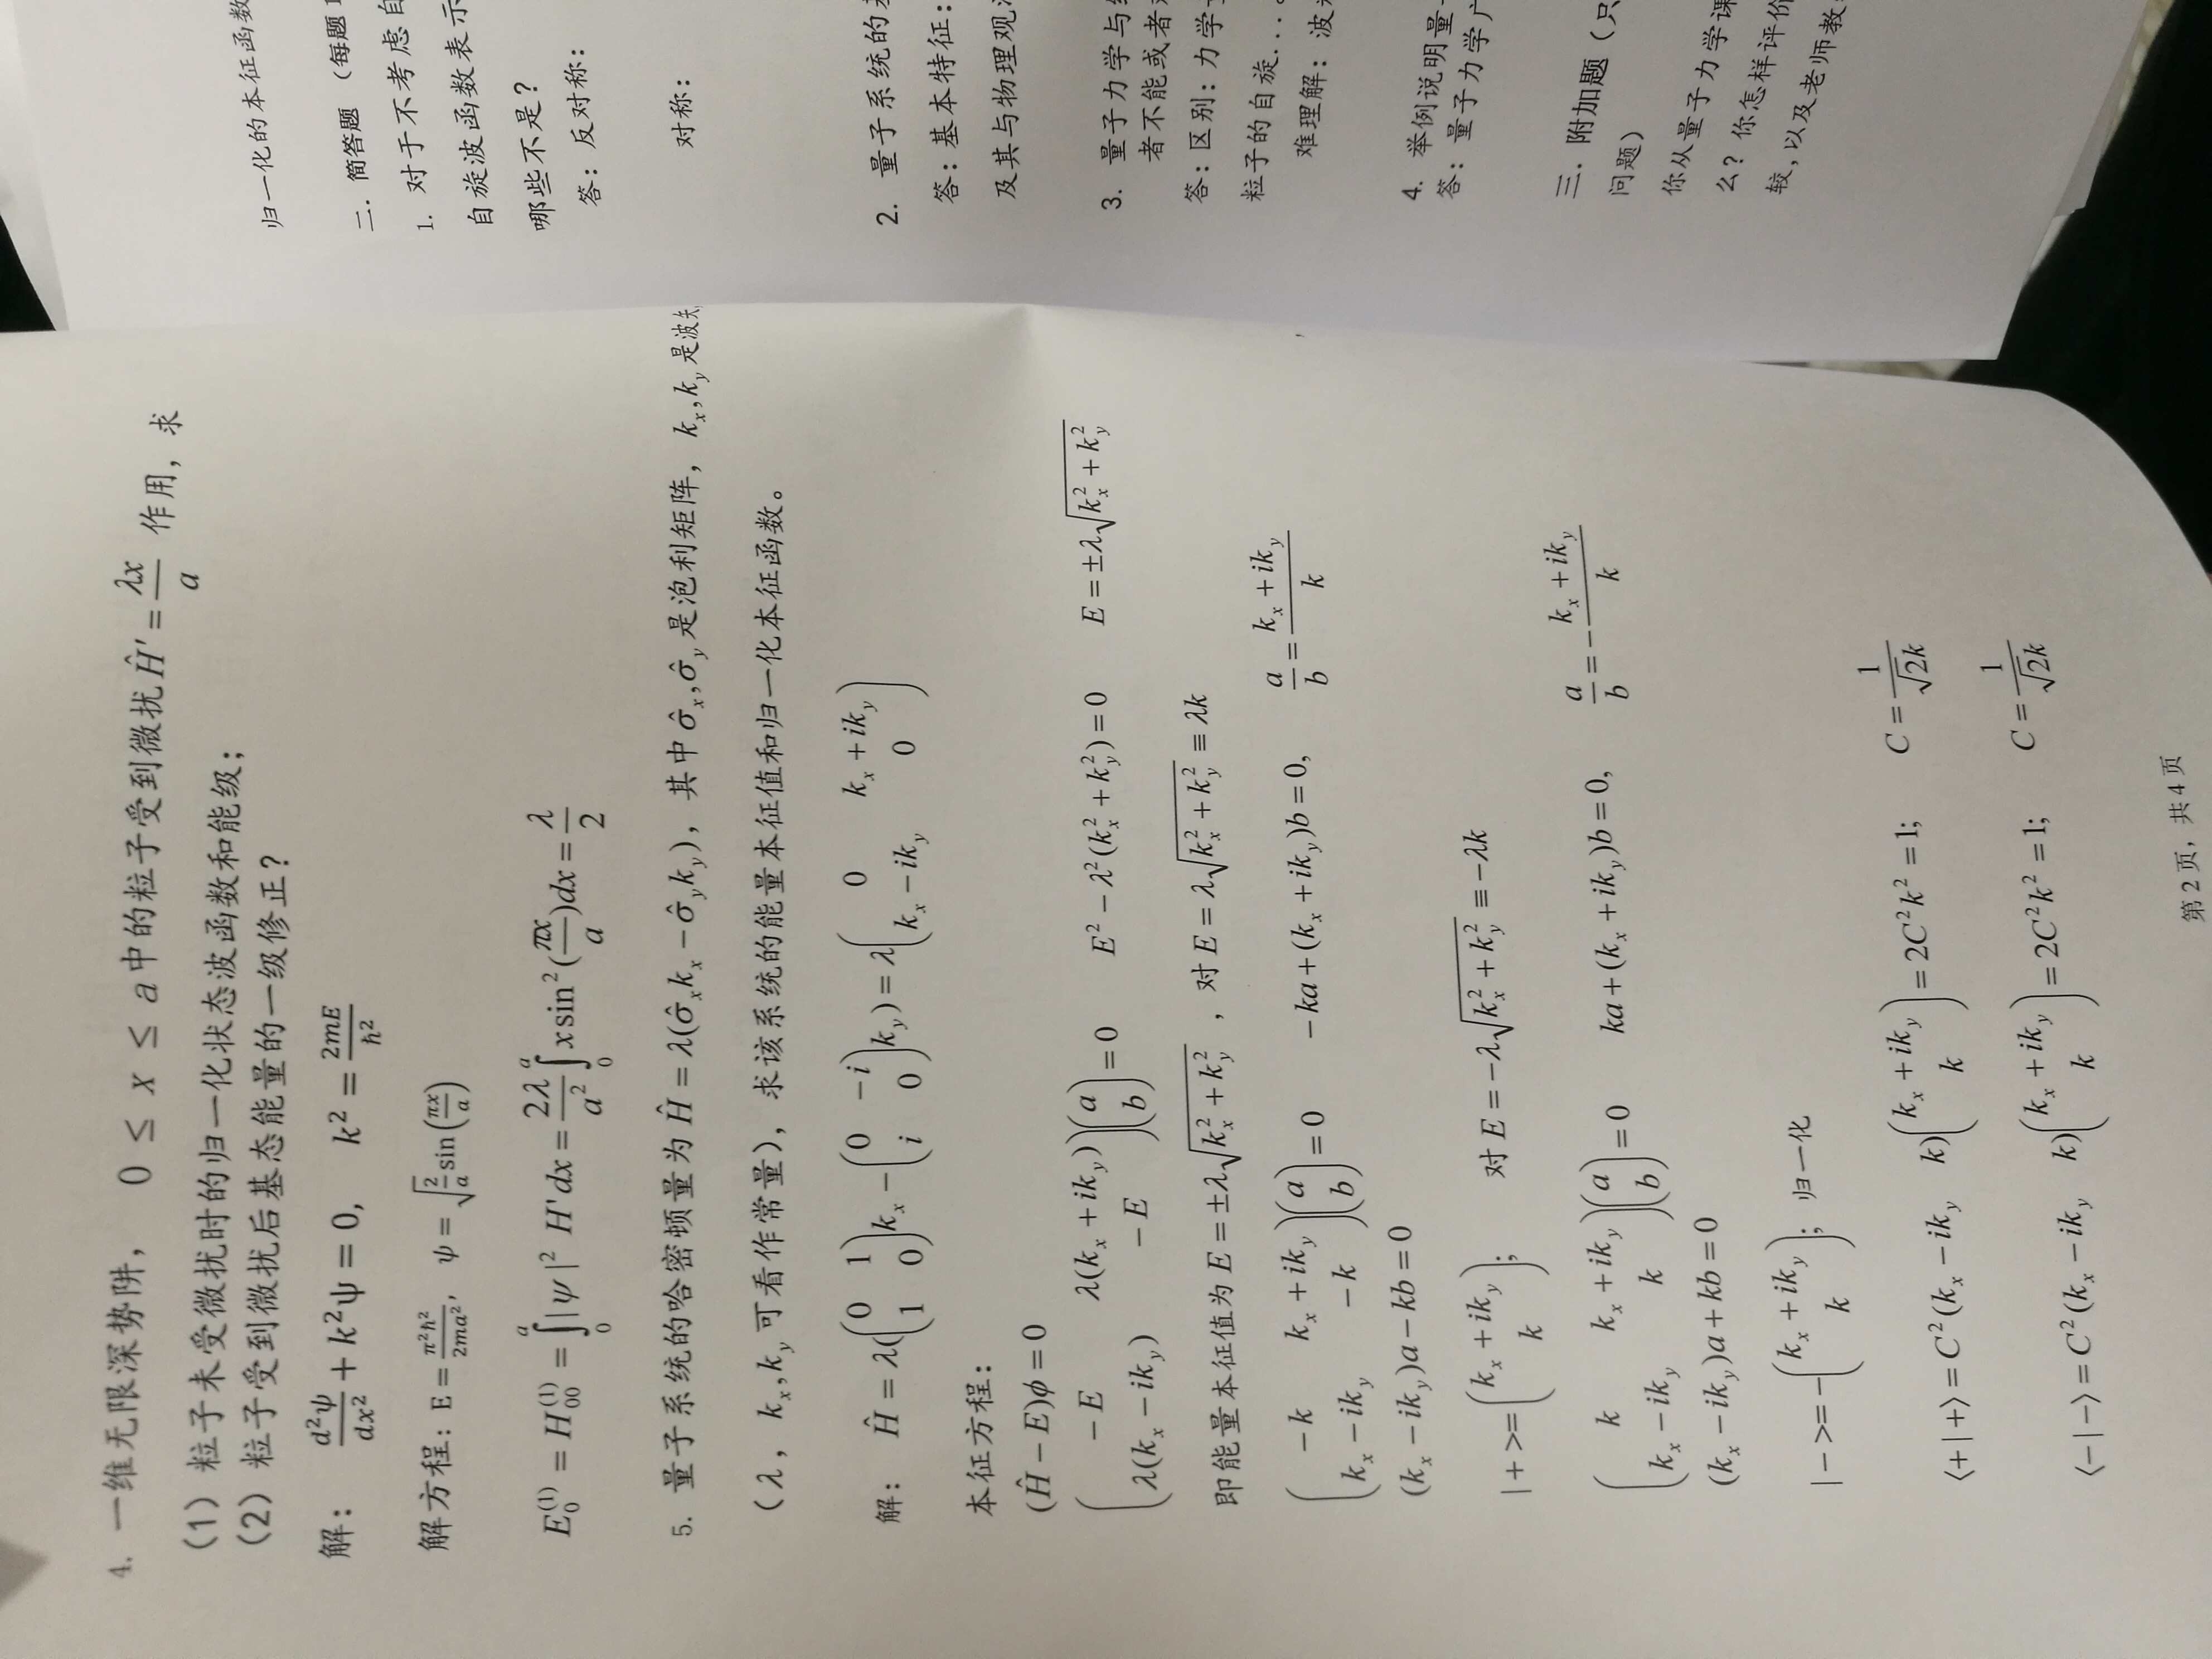 4. 一维无限深势阱， 0 ≤ x ≤ a 中的粒子受到微扰 Ĥ' = λx/a 作用，求
(1) 粒子未受微扰时的归一化状态波函数和能级；
(2) 粒子受到微扰后基态能量的一级修正？
解： d²ψ/dx² + k²ψ = 0, k² = 2mE/ħ²
解方程：E = π²ħ²/2ma², ψ = √(2/a) sin(πx/a)
E₀⁽¹⁾ = H₀₀⁽¹⁾ = ∫₀ᵃ |ψ|² H' dx = 2λ/a² ∫₀ᵃ x sin²(πx/a)dx = λ/2
5. 量子系统的哈密顿量为 Ĥ = λ(σ̂ₓkₓ − σ̂_y k_y)，其中 σ̂ₓ, σ̂_y 是泡利矩阵， kₓ, k_y 是波矢
（λ，kₓ, k_y 可看作常量），求该系统的能量本征值和归一化本征函数。
解： Ĥ = λ((0 1; 1 0)kₓ − (0 −i; i 0)k_y) = λ(0 kₓ + ik_y; kₓ − ik_y 0)
本征方程：
(Ĥ − E)φ = 0
(−E λ(kₓ + ik_y); λ(kₓ − ik_y) −E)(a; b) = 0 E² − λ²(kₓ² + k_y²) = 0 E = ±λ√(kₓ² + k_y²)
即能量本征值为 E = ±λ√(kₓ² + k_y²) ，对 E = λ√(kₓ² + k_y²) ≡ λk
(−k kₓ + ik_y; kₓ − ik_y −k)(a; b) = 0 −ka + (kₓ + ik_y)b = 0, a/b = (kₓ + ik_y)/k
(kₓ − ik_y)a − kb = 0
|+>= (kₓ + ik_y; k); 对 E = −λ√(kₓ² + k_y²) ≡ −λk
(k kₓ + ik_y; kₓ − ik_y k)(a; b) = 0 ka + (kₓ + ik_y)b = 0, a/b = −(kₓ + ik_y)/k
(kₓ − ik_y)a + kb = 0
|−>= −(kₓ + ik_y; k); 归一化
⟨+|+⟩ = C²(kₓ − ik_y k)(kₓ + ik_y; k) = 2C²k² = 1; C = 1/√2k
⟨−|−⟩ = C²(kₓ − ik_y k)(kₓ + ik_y; k) = 2C²k² = 1; C = 1/√2k
第 2 页，共 4 页
归一化的本征函数
二. 简答题 （每题
1. 对于不考虑自
自旋波函数表示
哪些不是？
答：反对称：
对称：
2. 量子系统的
答：基本特征：
及其与物理观
3. 量子力学与
者不能或者
答：区别：力学
粒子的自旋...
难理解：波
4. 举例说明量
答：量子力学
三. 附加题（只
问题）
你从量子力学课
么？你怎样评价
较，以及老师教